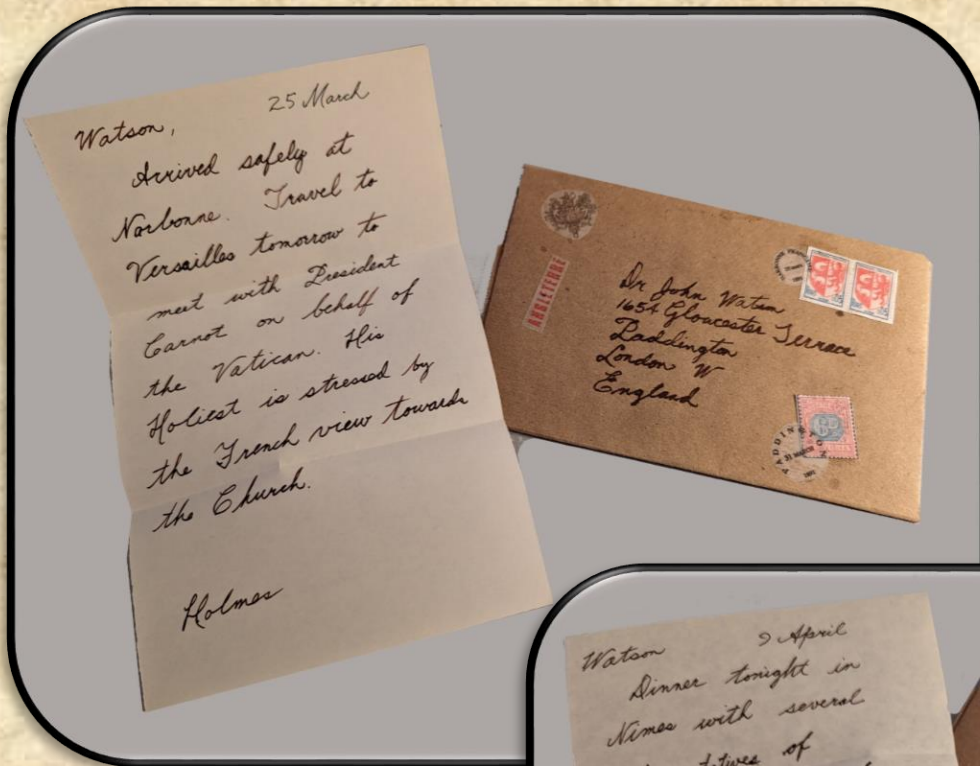 25 March
Watson,
Arrived safely at
Narbonne. Travel to
Versailles tomorrow to
meet with President
Carnot on behalf of
the Vatican. His
Holiest is stressed by
the French view towards
the Church.
Holmes
ANGLETERRE
Dr John Watson
1654 Gloucester Terrace
Paddington
London W
England
PADDINGTON
Watson
9 April
Dinner tonight in
Nimes with several
of